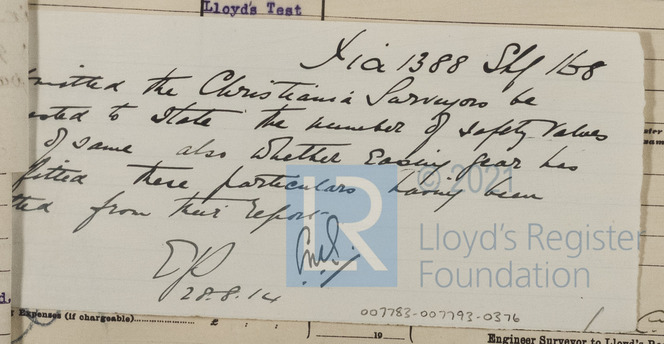 Lloyd's Test
Xia 1388 Shf 168
mitted the Christiania Surveyors be
ested to state the number of safety valves
of same also whether Easing gear has
fitted these particulars having been
tted from their report
28.8.14
© 2021
LR
Lloyd's Register
Foundation
007783-007793-0376
Expenses (if chargeable)
£
19
Engineer Surveyor to Lloyd's Re